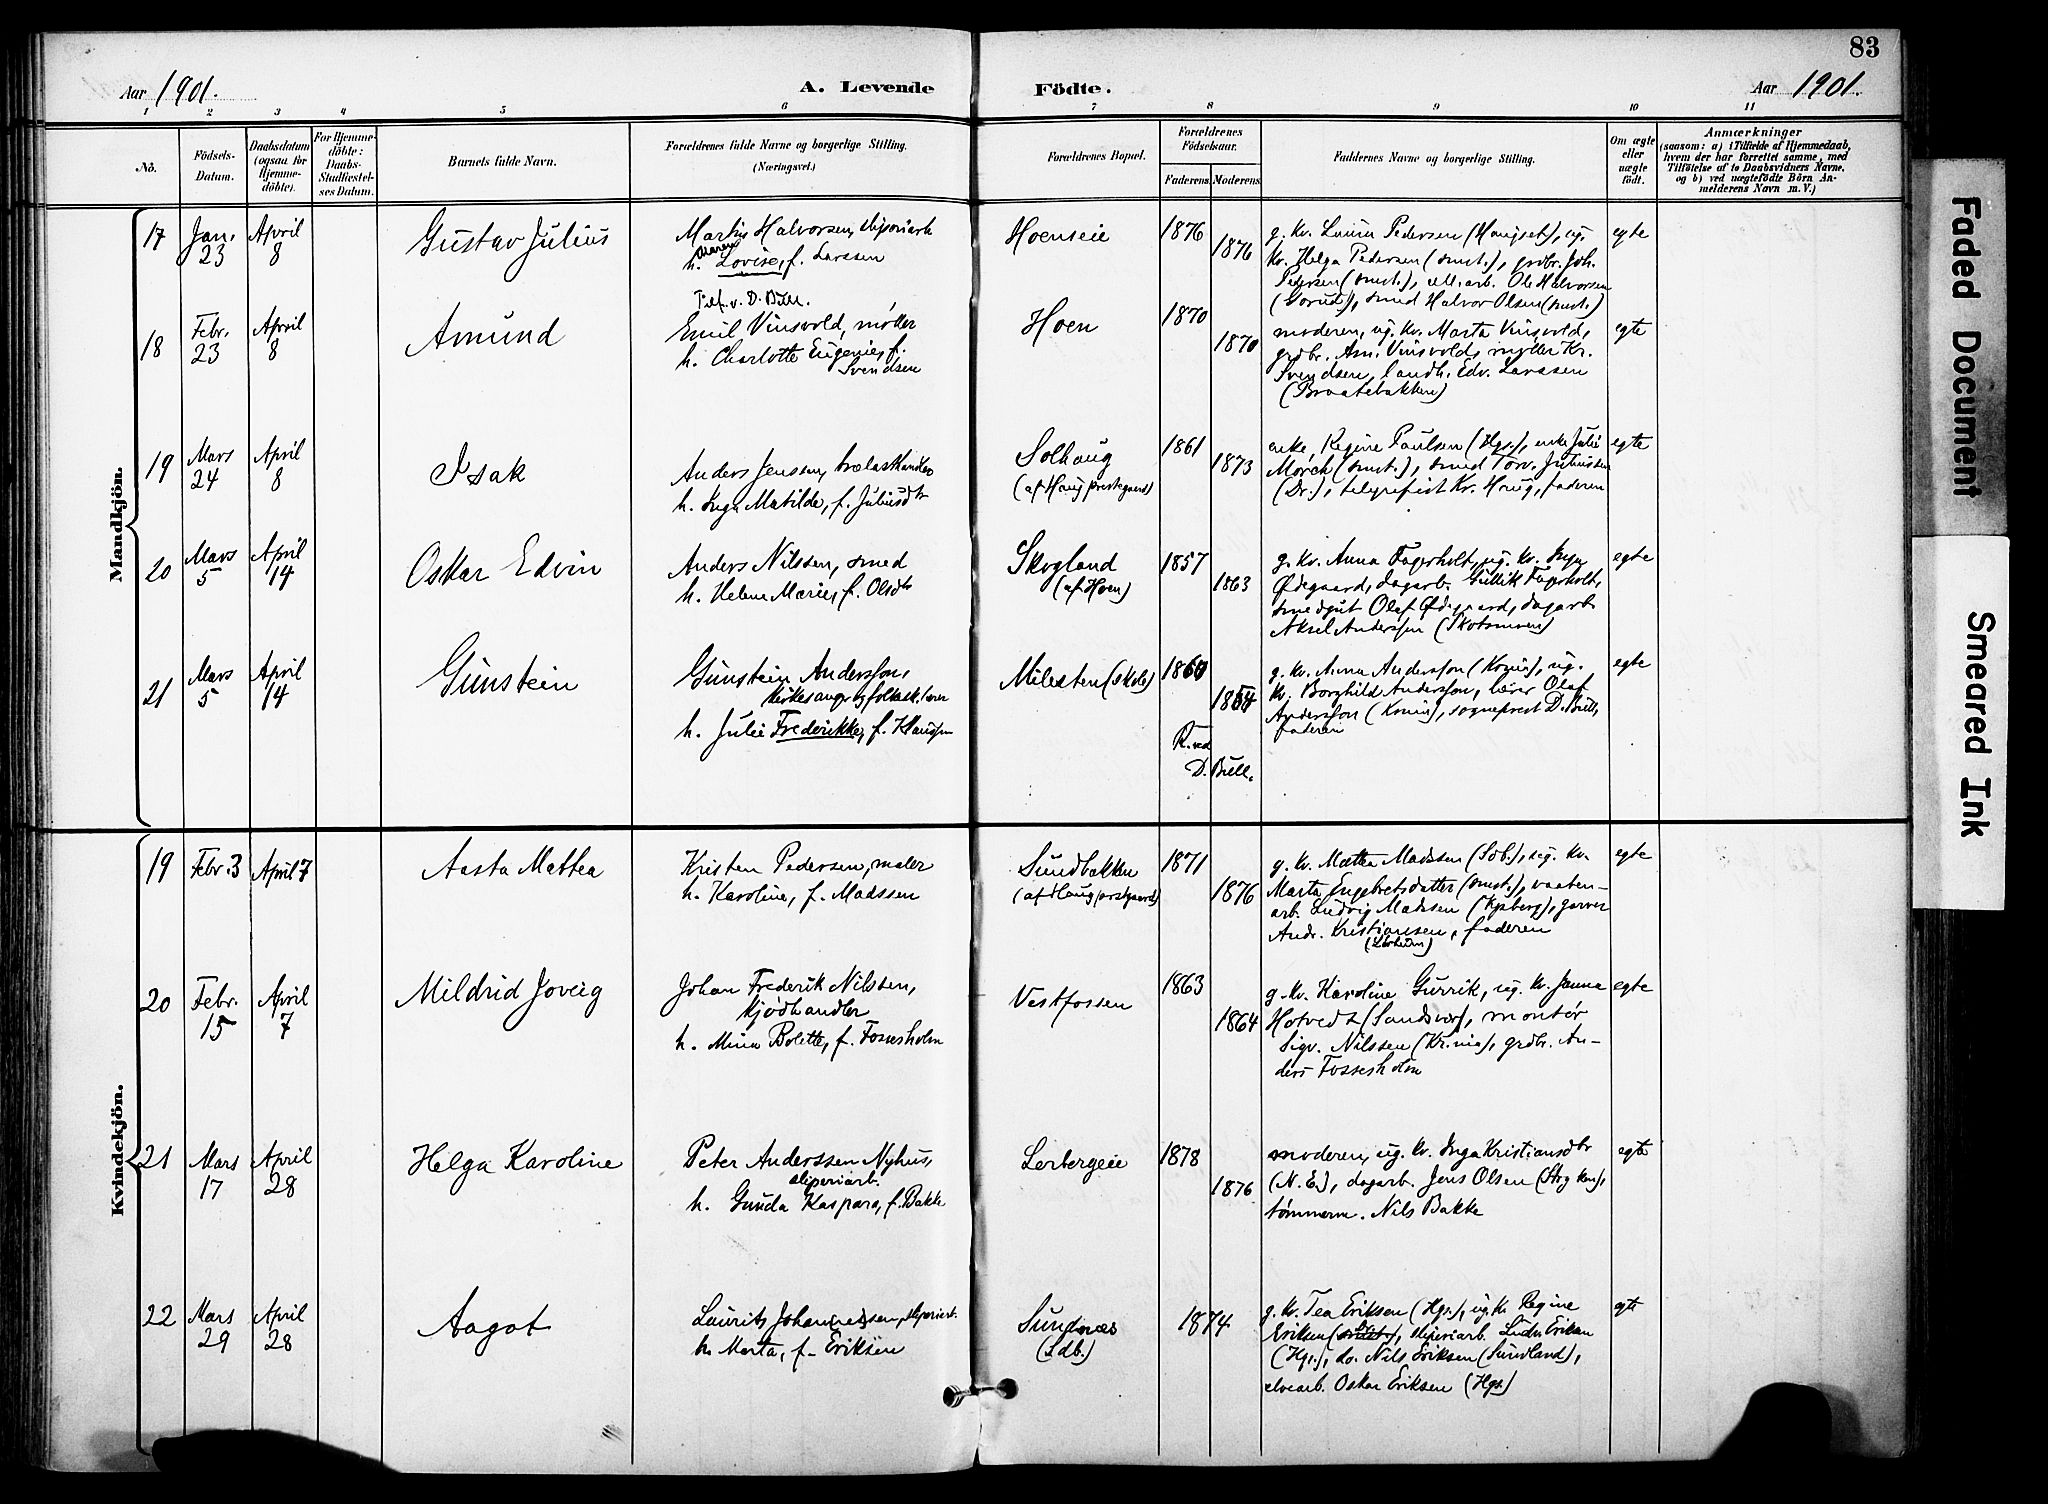 83
Aar 1901.
A. Levende Födte.
Aar 1901.
1 2 3 4 5 6 7 8 9 10 11
No.
Födsels-
Datum.
Daabsdatum
(ogsaa for
Hjemme-
döbte).
For Hjemme-
döbte:
Daabs-
Stadfæstel-
ses Datum.
Barnets fulde Navn.
Forældrenes fulde Navne og borgerlige Stilling.
(Næringsvei.)
Forældrenes Bopæl.
Forældrenes
Födselsaar.
Faderens. Moderens.
Faddernes Navne og borgerlige Stilling.
Om ægte
eller
uægte
födt.
Anmærkninger
(saasom: a) i Tilfælde af Hjemmedaab,
hvem der har forrettet samme, med
Tilföielse af to Daabsvidners Navne,
og b) ved uægtefödte Börn An-
melderens Navn m. V.)
Mandkjön.
17 Jan. 23 April 8 Gustav Julius
Martin Halvorsen, sliperiarb
h. Maren Lovise, f. Larssen
Hoenseie 1876 1876
g. kv. Laura Pedersen (Haugset), ug.
kv. Helga Pedersen (smst.), grdbr. Joh.
Pedersen (smst.), cell. arb. Ole Halvorsen
(Gorud), smed Halvor Olsen (smst.)
egte
18 Febr. 23 April 8 Amund
v. D. Bull.
Emil Vinsvold, møller
h. Charlotte Eugenie, f.
Svendsen
Hoen 1870 1870
moderen, ug. kv. Marta Vinsvold,
grdbr. Am. Vinsvold, møller Kr.
Svendsen, landh. Edv. Larssen
(Braatebakken)
egte
19 Mars 24 April 8 Isak
Anders Jenssen, trælasthandler
h. Inga Matilde, f. Juliusdtr
Solhaug
(af Haug prestegaard)
1861 1873
enke, Regine Paulsen (Hgs.), enke Julie
Morch (smst.), smed Torv. Juliussen
(Dr.), telegrafist Kr. Haug, faderen
egte
20 Mars 5 April 14 Oskar Edvin
Anders Nilssen, smed
h. Helene Marie, f. Olsdtr
Skogland
(af Hoen)
1857 1863
g. kv. Anna Fagerholt, ug. kv. Inga
Ødegaard, dagarb. Gullik Fagerholt,
smedgut Olaf Ødegaard, dagarb.
Aksel Anderssen (Skotsmoen)
egte
21 Mars 5 April 14 Gunstein
Gunstein Andersson,
kirkesanger og folkesk. lærer
h. Julie Frederikke, f. Klaussen
Milesten (skole) 1860 1864
K. ved
D. Bull.
g. kv. Anna Andersson (Krnia), ug.
kv. Borghild Andersson, lærer Olaf
Andersson (Krnia), sogneprest D. Bull,
faderen
egte
Kvindekjön.
19 Febr. 3 April 7 Aasta Mattea
Kristen Pedersen, maler
h. Karoline, f. Madssen
Sundbakken
(af Haug prestgaard)
1871 1876
g. kv. Mattea Madssen (Sdb.), ug. kv.
Marta Engebretsdatter (smst.), vaaben-
arb. Ludvig Madssen (Kgsberg), garver
Andr. Kristiansen, faderen
egte
20 Febr. 15 April 7 Mildrid Joveig
Johan Frederik Nilssen,
kjødhandler
h. Mina Bolette, f. Fossesholm
Vestfossen 1863 1864
g. kv. Karoline Gurrik, ug. kv. Janna
Hotvedt (Sandsvær), montør
Sigv. Nilssen (Kr.nia), grdbr. An-
ders Fossesholm
egte
21 Mars 17 April 28 Helga Karoline
Peter Anderssen Nyhus,
sliperiarb.
h. Gunda Kaspara, f. Bakke
Lerbergeie 1878 1876
moderen, ug. kv. Inga Kristiansdtr
(N. E.), dagarb. Jens Olsen
tømmerm. Nils Bakke
egte
22 Mars 29 April 28 Aagot
Laurits Johannessen, sliperiarb.
h. Marta, f. Eriksen
Sundnæs
(Sdb.)
1874
g. kv. Tea Eriksen (Hgs.), ug. kv. Regine
Eriksen, sliperiarb. Ludv. Eriksen
(Hgs.), do. Nils Eriksen (Sundland),
elvearb. Oskar Eriksen (Hgs.)
egte
Faded Document
Smeared Ink